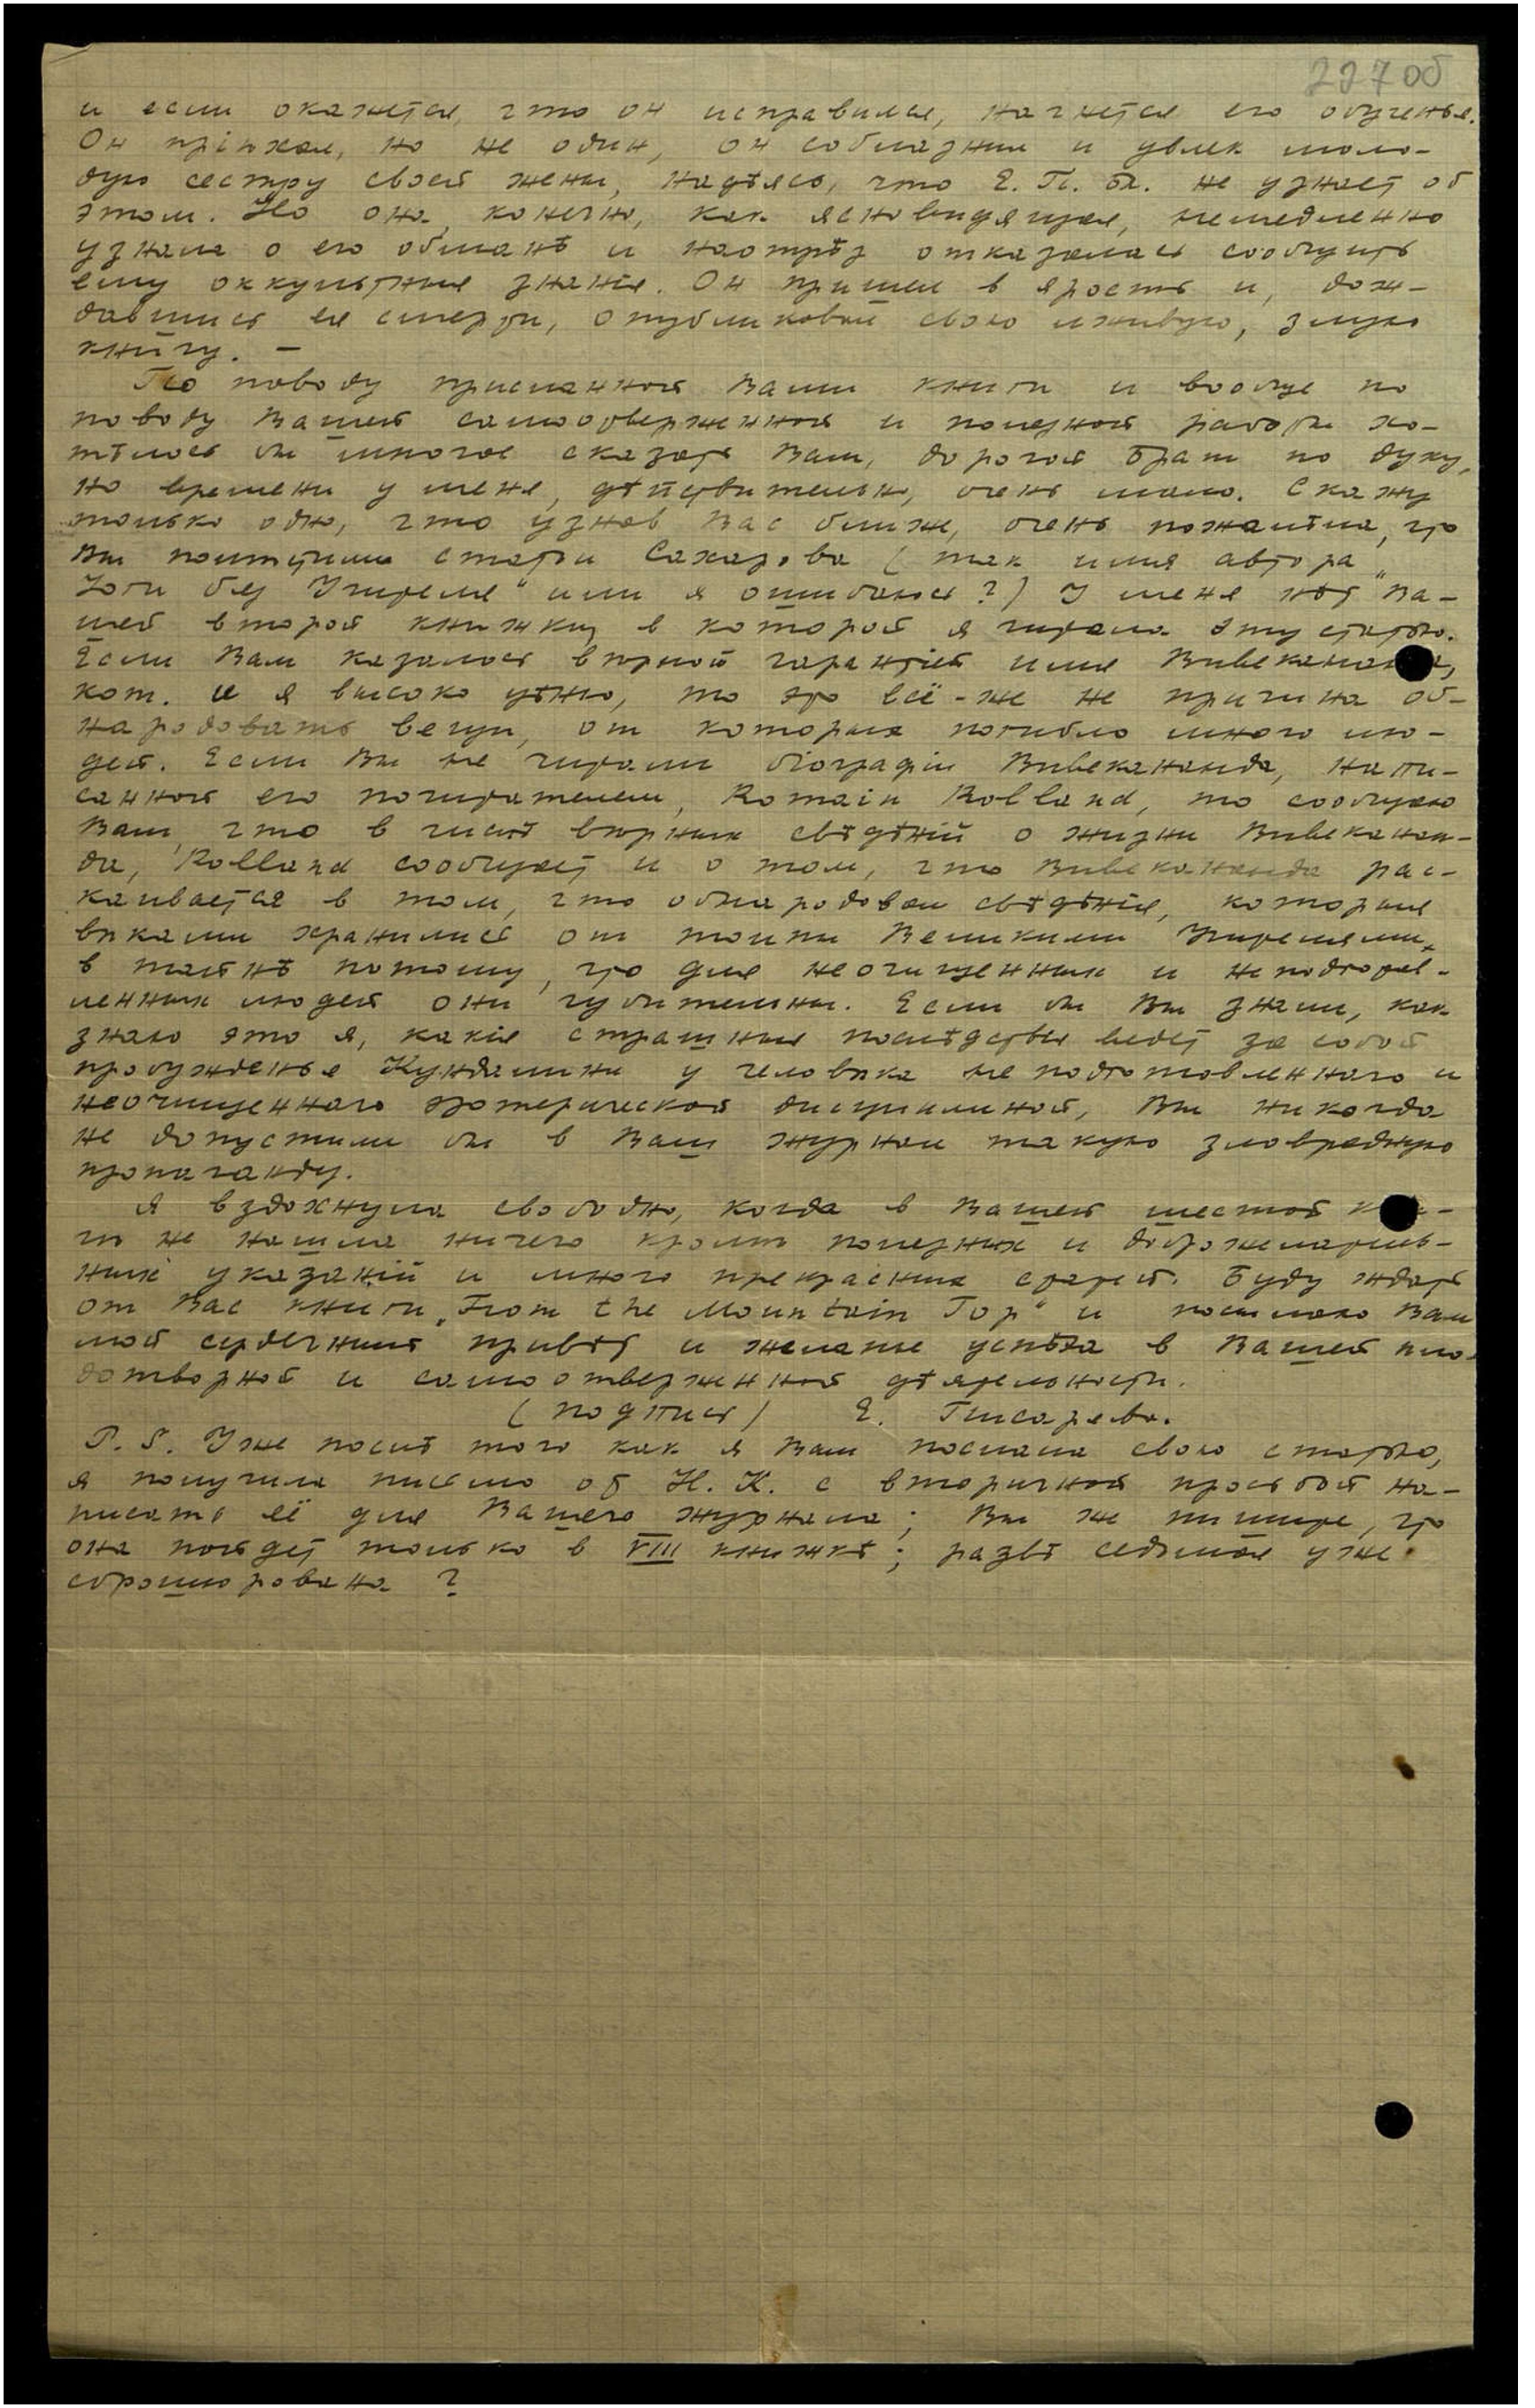 227об
и если окажется, что он исправился, начнется его обученье.
Он прiѣхал, но не один, он соблазнил и увлек моло-
дую сестру своей жены, надѣясь, что Е. П. Бл. не узнает об
этом. Но она, конечно, как ясновидящая, немедленно
узнала о его обманѣ и наотрѣз отказалась сообщить
ему оккультныя знанiя. Он пришел в ярость и, дож-
давшись ея смерти, опубликовал свою лживую, злую
книгу. —
По поводу присланной Вами книги и вообще по
поводу Вашей самоотверженной и полезной работы хо-
тѣлось бы многое сказать Вам, дорогой брат по духу,
но времени у меня, дѣйствительно, очень мало. Скажу
только одно, что узнав Вас ближе, очень пожалѣла, что
Вы помѣстили статьи Сахарова (так имя автора „
Йоги без Учителя" или я ошибаюсь?) У меня нѣт Ва-
шей второй книжки, в которой я читала эту статью.
Если Вам казалось вѣрной гарантiей имя Вивекананда,
кот. и я высоко цѣню, то это всё-же не причина об-
народовать вещи, от которых погибло много лю-
дей. Если Вы не читали бiографiи Вивекананда, напи-
санной его почитателем, Romain Rolland, то сообщаю
Вам, что в числѣ вѣрных свѣдѣнiй о жизни Вивеканан-
да, Rolland сообщает и о том, что Вивекананда рас-
каивается в том, что обнародовал свѣдѣнiя, которыя
вѣками хранились от толпы Великими Учителями,
в тайнѣ потому, что для неочищенных и неподготов-
ленных людей они губительны. Если бы Вы знали, как
знаю это я, какiя страшныя послѣдствiя ведет за собой
пробужденье Кундалини у человѣка не подготовленнаго и
неочищеннаго эзотерической дисциплиной, Вы никогда
не допустили бы в Ваш журнал такую зловредную
пропаганду.
Я вздохнула свободно, когда в Вашей шестой кни-
гѣ не нашла ничего кромѣ полезных и доброжелатель-
ных указанiй и много прекрасных статей. Буду ждать
от Вас книги „From the Mountain Top" и посылаю Вам
мой сердечный привѣт и желанье успѣха в Вашей пло-
дотворной и самоотверженной дѣятельности.
(подпись) Е. Писарева.
P. S. Уже послѣ того как я Вам послала свою статью,
я получила письмо от Н. К. с вторичной просьбой на-
писать её для Вашего журнала; Вы же пишете, что
она пойдет только в VIII книжкѣ; развѣ седьмая уже
сброшюрована?